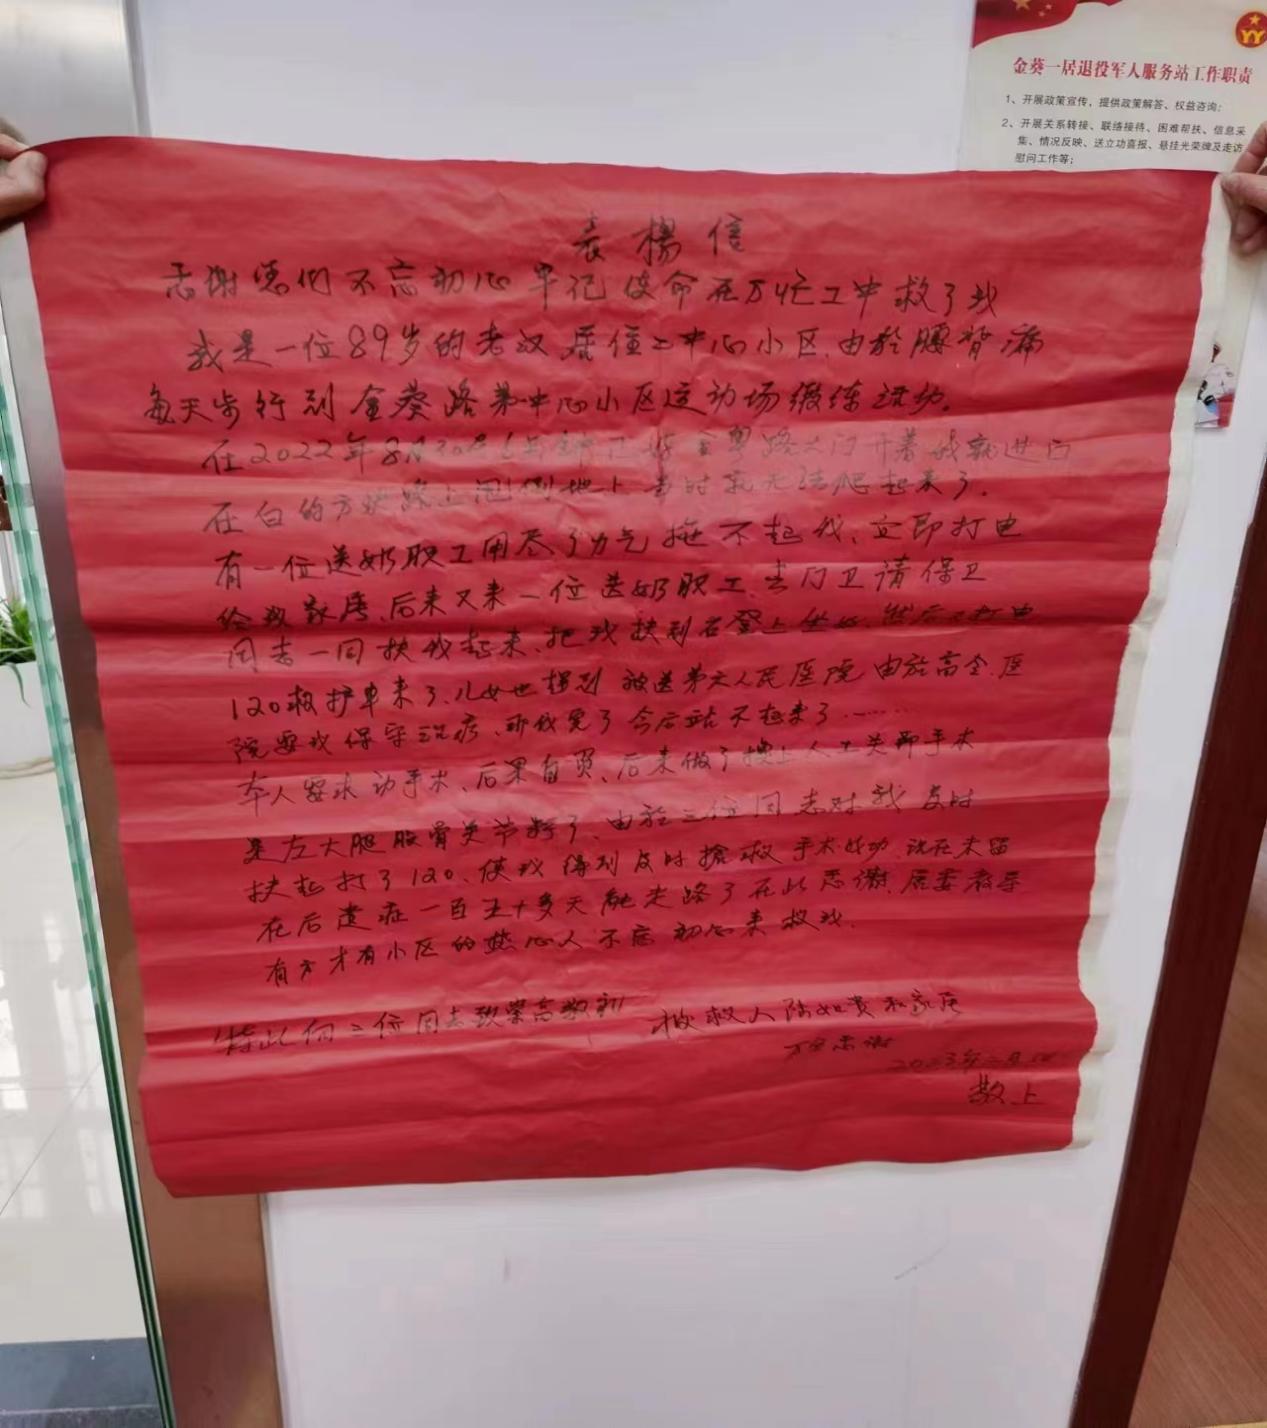 金葵一居退役军人服务站工作职责
1、开展政策宣传，提供政策解答、权益咨询；
2、开展关系转接、联络接待、困难帮扶、信息采
集、情况反映、送立功喜报、悬挂光荣牌及走访
慰问工作等；
表楊信
感谢您们不忘初心牢记使命在万忙工中救了我
我是一位89岁的老汉居住二中心小区、由於腰背痛
每天步行到金葵路第二中心小区运动场缎练活动。
在2022年8月30号6点钟正好金粤路大门开着我就进门
在白的方块路上 倒地上、当时就无法爬起来了。
有一位送奶职工用尽了力气拖不起我、立即打电
给我家属、后来又来一位送奶职工、去门卫请保卫
同志一同扶我起来、把我扶到石登上坐好、然后又打电
120救护车来了、儿女也趕到被送第六人民医院由於高令、医
院要我保守治疗、那我完了今后站不起来了………
本人要求动手术、后果自负、后来做了换上人工关节手术
是左大腿股骨关节断了、由於三位同志对我及时
扶起打了120、使我得到及时搶救手术成功、现在未留
在后遗症一百五十多天能走路了在此感谢、居委教导
有方才有小区的热心人不忘初心来救我、
特此向三位同志致崇高敬礼 被救人陆 和家属
万分感谢
2023年二月
敬上